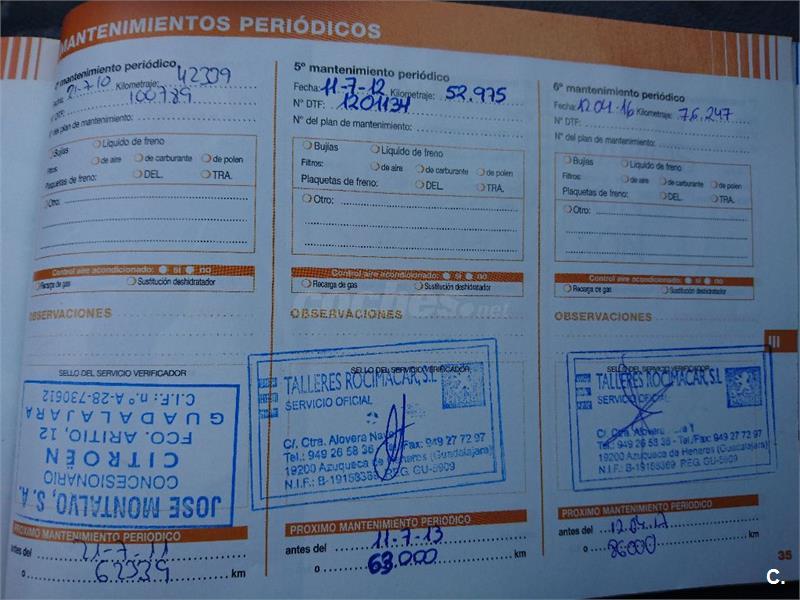 MANTENIMIENTOS PERIÓDICOS
mantenimiento periódico
Fecha: 21-7-10 Kilometraje: 42339
N° DTF: 100789
N° del plan de mantenimiento:
Bujías Líquido de freno
Filtros: de aire de carburante de polen
Plaquetas de freno: DEL. TRA.
Otro:
Control aire acondicionado: si no
Recarga de gas Sustitución deshidratador
OBSERVACIONES
SELLO DEL SERVICIO VERIFICADOR
JOSE MONTALVO, S.A.
CONCESIONARIO
CITROËN
FCO. ARITIO, 12
GUADALAJARA
C.I.F.: n.º A-28-730612
PROXIMO MANTENIMIENTO PERIODICO
antes del 21-7-11
o 62339 km
5º mantenimiento periódico
Fecha: 11-7-12 Kilometraje: 52.975
N° DTF: 1201134
N° del plan de mantenimiento:
Bujías Líquido de freno
Filtros: de aire de carburante de polen
Plaquetas de freno: DEL. TRA.
Otro:
Control aire acondicionado: si no
Recarga de gas Sustitución deshidratador
coches.net
OBSERVACIONES
SELLO DEL SERVICIO VERIFICADOR
TALLERES ROCIMACAR, S.L
SERVICIO OFICIAL
C/. Ctra. Alovera
Tel.: 949 26 58 36 Fax: 949 27 72 97
19200 Azuqueca de Henares (Guadalajara)
N.I.F.: B-19158369 REG. GU-5909
PROXIMO MANTENIMIENTO PERIODICO
antes del 11-7-13
o 63.000 km
6º mantenimiento periódico
Fecha: 12 04-16 Kilometraje: 76.247
N° DTF:
N° del plan de mantenimiento:
Bujías Líquido de freno
Filtros: de aire de carburante de polen
Plaquetas de freno: DEL. TRA.
Otro:
Control aire acondicionado: si no
Recarga de gas Sustitución deshidratador
OBSERVACIONES
SELLO DEL SERVICIO VERIFICADOR
TALLERES ROCIMACAR, S.L
SERVICIO OFICIAL
C/. Ctra. Alovera
Tel.: 949 26 58 36 - Tel./Fax: 949 27 72 97
19200 Azuqueca de Henares (Guadalajara)
N.I.F.: B-19158369 REG. GU-5909
PROXIMO MANTENIMIENTO PERIODICO
antes del 12.04.17
o 86000 km
III
35
C.